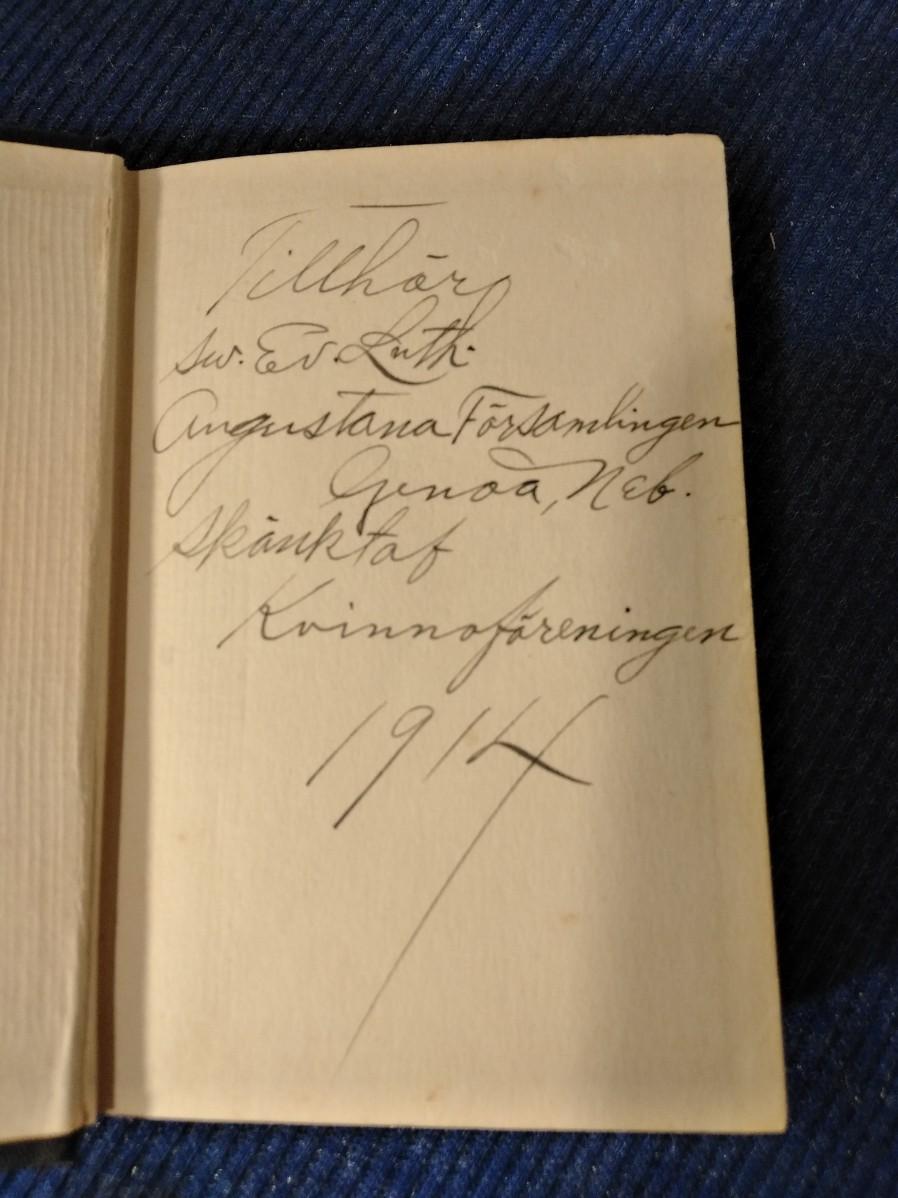 Tillhör
sv. Ev. Luth.
Augustana Församlingen
Genoa, Neb.
skänkt af
Kvinnoföreningen
1914